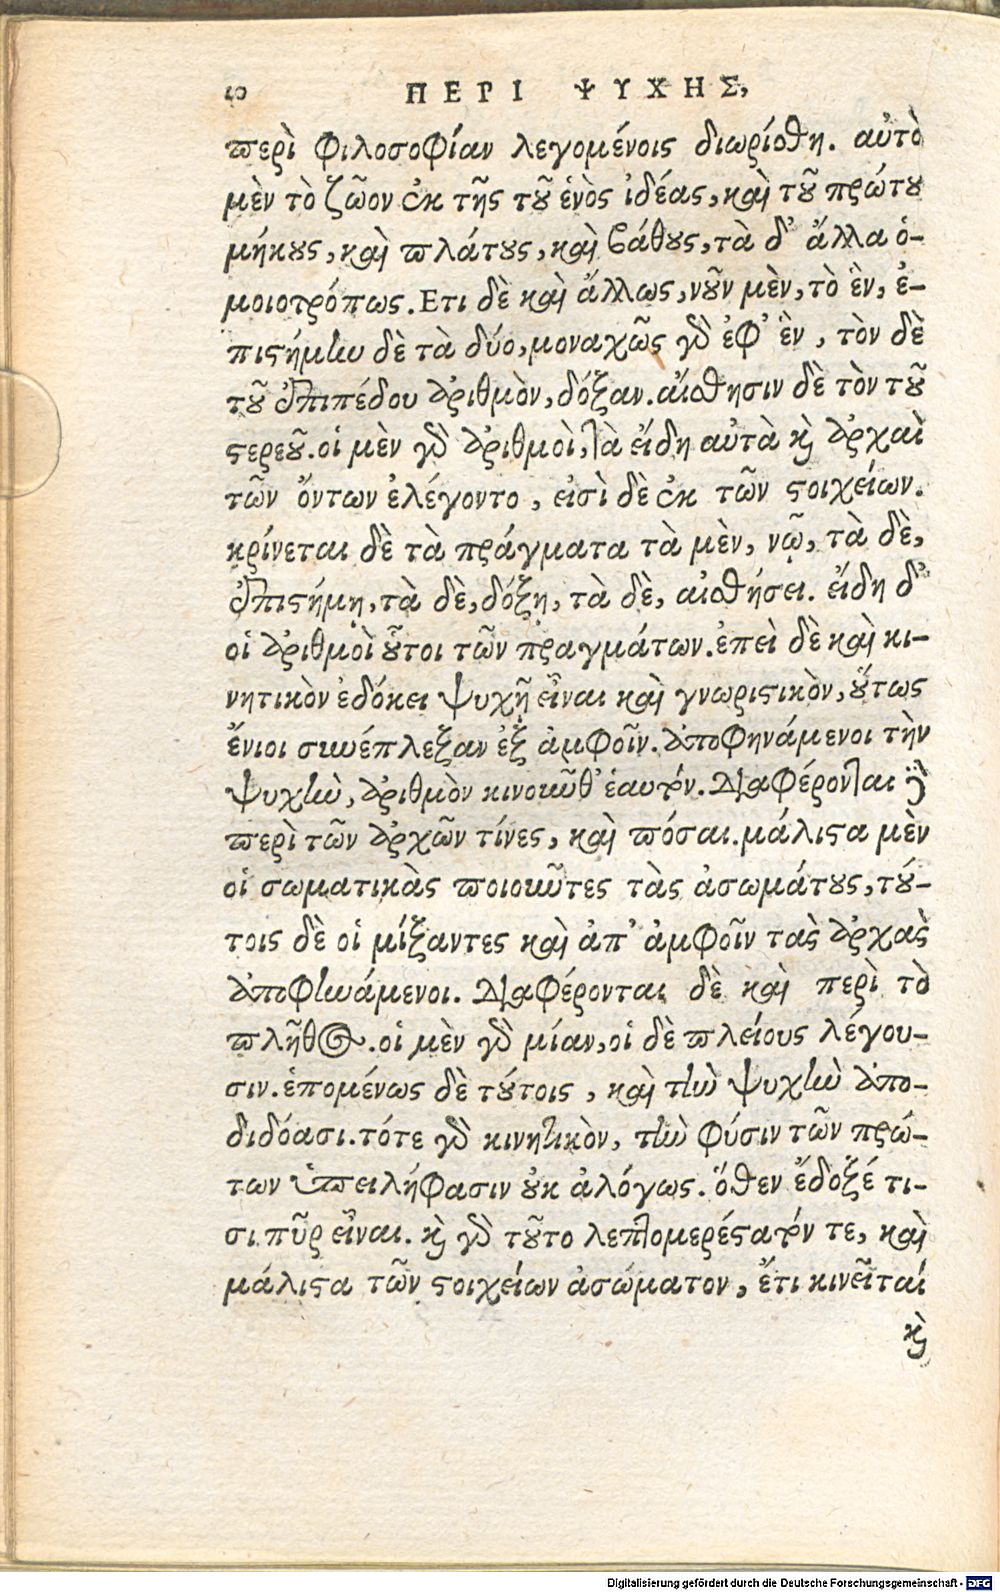 10 ΠΕΡΙ ΨΥΧΗΣ,
περὶ φιλοσοφίαν λεγομένοις διωρίσθη. αὐτὸ
μὲν τὸ ζῶον ἐκ τῆς τοῦ ἑνὸς ἰδέας, καὶ τοῦ πρώτου
μήκους, καὶ πλάτους, καὶ βάθους, τὰ δ' ἄλλα ὁ-
μοιοτρόπως. Ετι δὲ καὶ ἄλλως, νοῦν μὲν, τὸ ἓν, ἐ-
πιστήμην δὲ τὰ δύο, μοναχῶς γὰρ ἐφ' ἓν, τὸν δὲ
τοῦ ἐπιπέδου ἀριθμὸν, δόξαν. αἴσθησιν δὲ τὸν τοῦ
στερεοῦ. οἱ μὲν γὰρ ἀριθμοὶ, τὰ εἴδη αὐτὰ καὶ ἀρχαὶ
τῶν ὄντων ἐλέγοντο, εἰσὶ δὲ ἐκ τῶν στοιχείων.
κρίνεται δὲ τὰ πράγματα τὰ μὲν, νῷ, τὰ δὲ,
ἐπιστήμῃ, τὰ δὲ, δόξῃ, τὰ δὲ, αἰσθήσει. εἴδη δ'
οἱ ἀριθμοὶ οὗτοι τῶν πραγμάτων. ἐπεὶ δὲ καὶ κι-
νητικὸν ἐδόκει ψυχῆ εἶναι καὶ γνωριστικὸν, οὕτως
ἔνιοι συνέπλεξαν ἐξ ἀμφοῖν. ἀποφηνάμενοι τὴν
ψυχὴν, ἀριθμὸν κινοῦνθ' ἑαυτόν. Διαφέρονται δὲ
περὶ τῶν ἀρχῶν τίνες, καὶ πόσαι. μάλιστα μὲν
οἱ σωματικὰς ποιοῦντες τὰς ἀσωμάτους, τού-
τοις δὲ οἱ μίξαντες καὶ ἀπ' ἀμφοῖν τὰς ἀρχὰς
ἀποφηνάμενοι. Διαφέρονται δὲ καὶ περὶ τὸ
πλῆθος. οἱ μὲν γὰρ μίαν, οἱ δὲ πλείους λέγου-
σιν. ἑπομένως δὲ τούτοις, καὶ τὴν ψυχὴν ἀπο-
διδόασι. τότε γὰρ κινητικὸν, τὴν φύσιν τῶν πρώ-
των ὑπειλήφασιν οὐκ ἀλόγως. ὅθεν ἔδοξέ τι-
σι πῦρ εἶναι. καὶ γὰρ τοῦτο λεπτομερέστατόν τε, καὶ
μάλιστα τῶν στοιχείων ἀσώματον, ἔτι κινεῖταί
καὶ
Digitalisierung gefördert durch die Deutsche Forschungsgemeinschaft - DFG